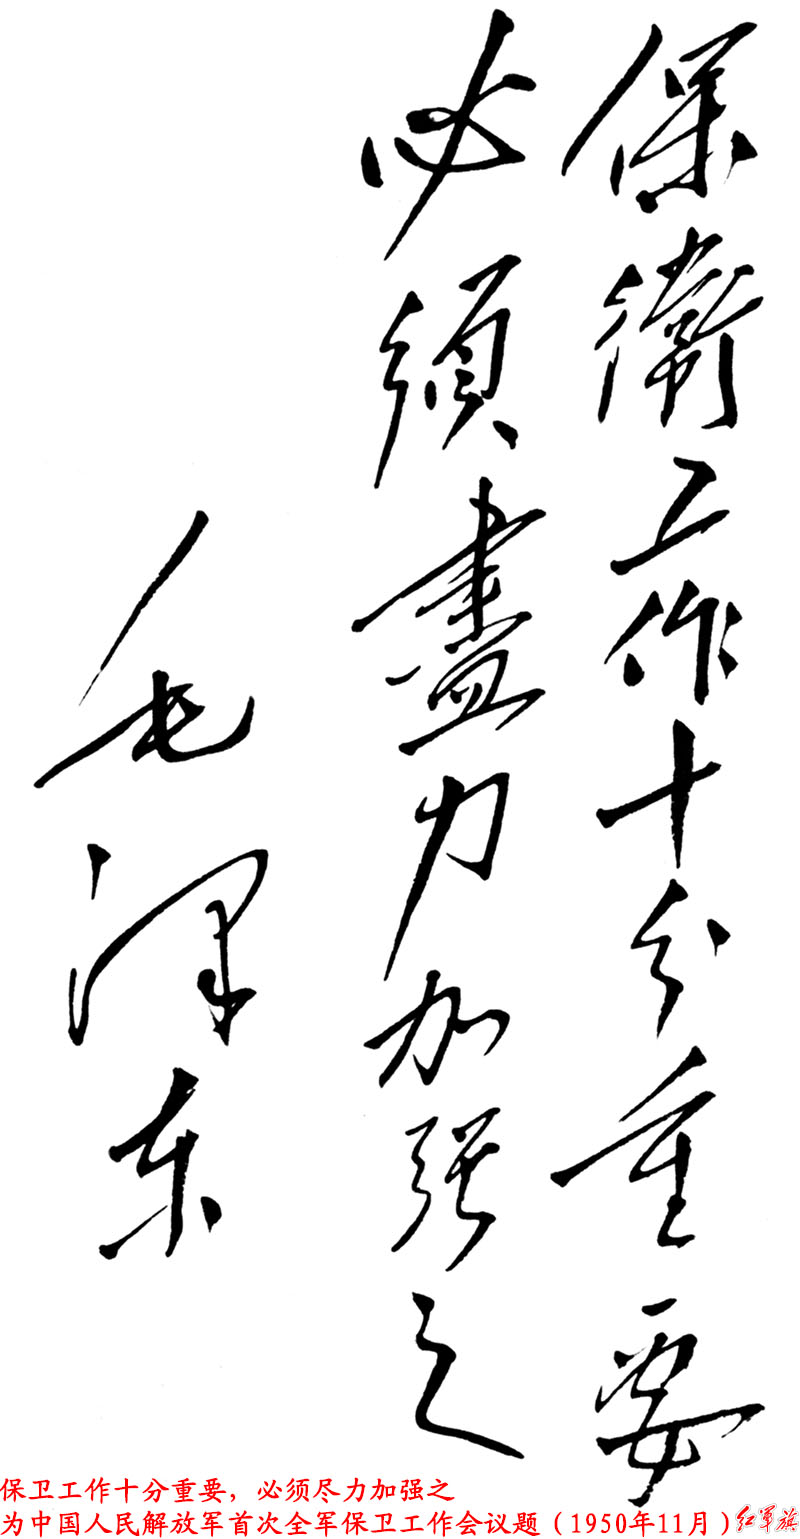 保衛工作十分重要
必須盡力加强之
毛泽东
保卫工作十分重要，必须尽力加强之
为中国人民解放军首次全军保卫工作会议题（1950年11月）红军旗